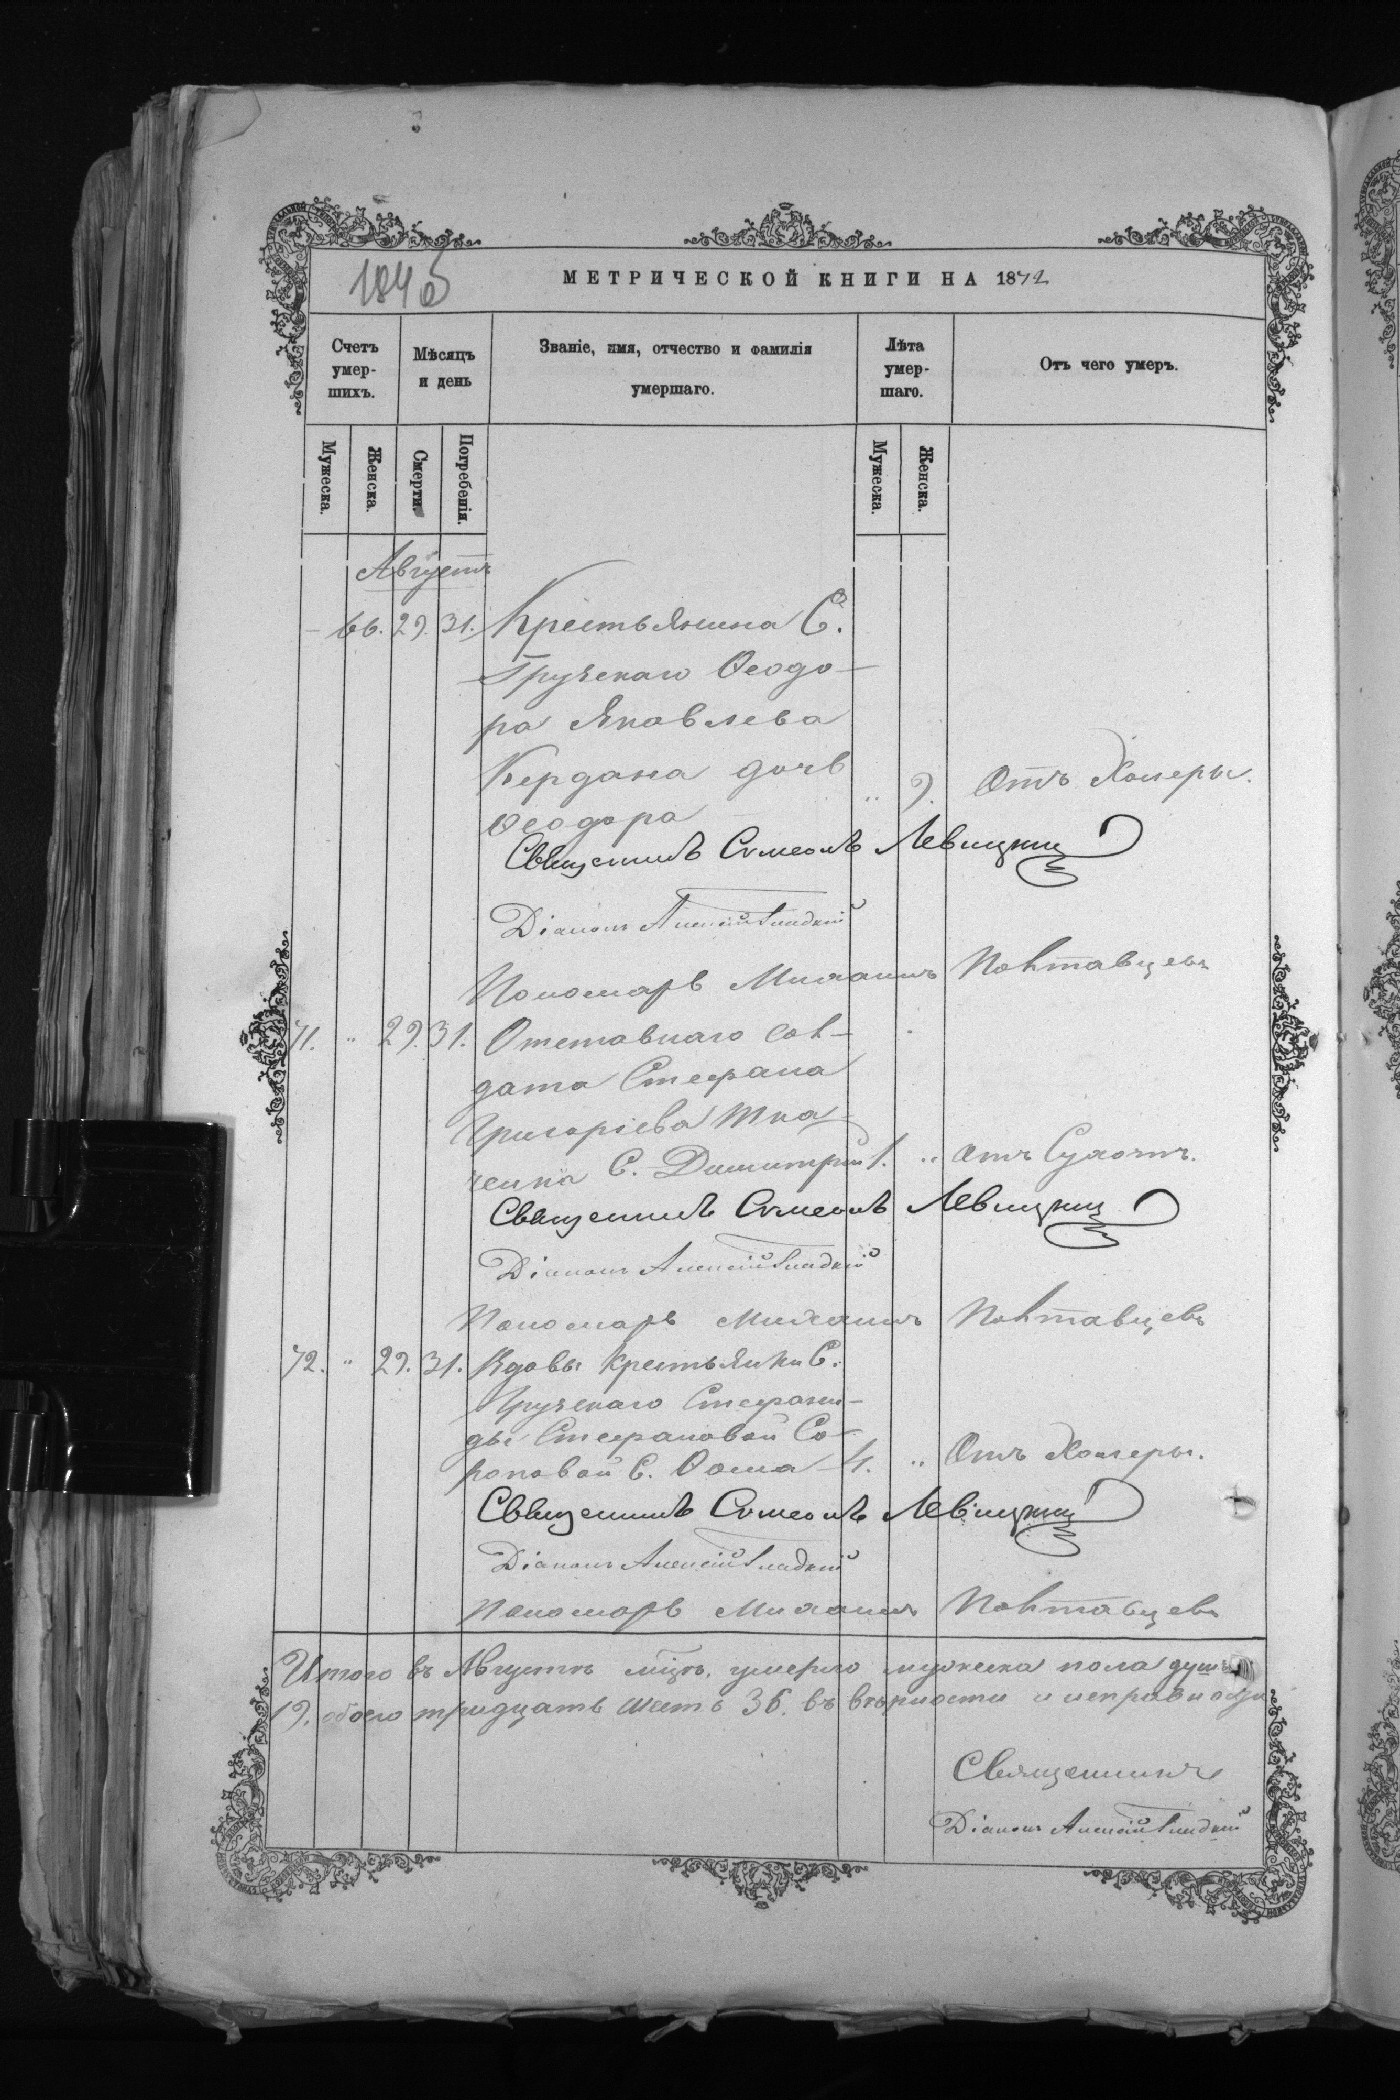 1846
МЕТРИЧЕСКОЙ КНИГИ НА 1872
Счетъ умер-шихъ.
Мѣсяцъ и день
Званіе, имя, отчество и фамилія умершаго.
Лѣта умер-шаго.
Отъ чего умеръ.
Мужеска.
Женска.
Смерти.
Погребенія.
Мужеска.
Женска.
Августъ
– 66. 29. 31. Крестьянина С.
Грузскаго Ѳеодо-
ра Яковлева
Кердана дочь
Ѳеодора " 9. Отъ Холеры.
Священникъ Сѵмеонъ Левицкий
Діаконъ Алексій Гладкій
Пономарь Михаилъ Полтавцевъ
71. " 29. 31. Отставнаго сол-
дата Стефана
Григоріева Тка-
ченка С. Димитрій 1. " Отъ Сухотъ.
Священникъ Сѵмеонъ Левицкий
Діаконъ Алексій Гладкій
Пономарь Михаилъ Полтавцевъ
72. " 29. 31. Вдовы крестьянки С.
Грузскаго Стефани-
ды Стефановой Со-
роковой С. Ѳома 4. " Отъ Холеры.
Священникъ Сѵмеонъ Левицкий
Діаконъ Алексій Гладкій
Пономарь Михаилъ Полтавцевъ
Итого въ Августѣ м-цѣ умерло мужеска пола душъ
19. обоего тридцать шесть 36. въ вѣрности и исправности
Священникъ
Діаконъ Алексій Гладкій